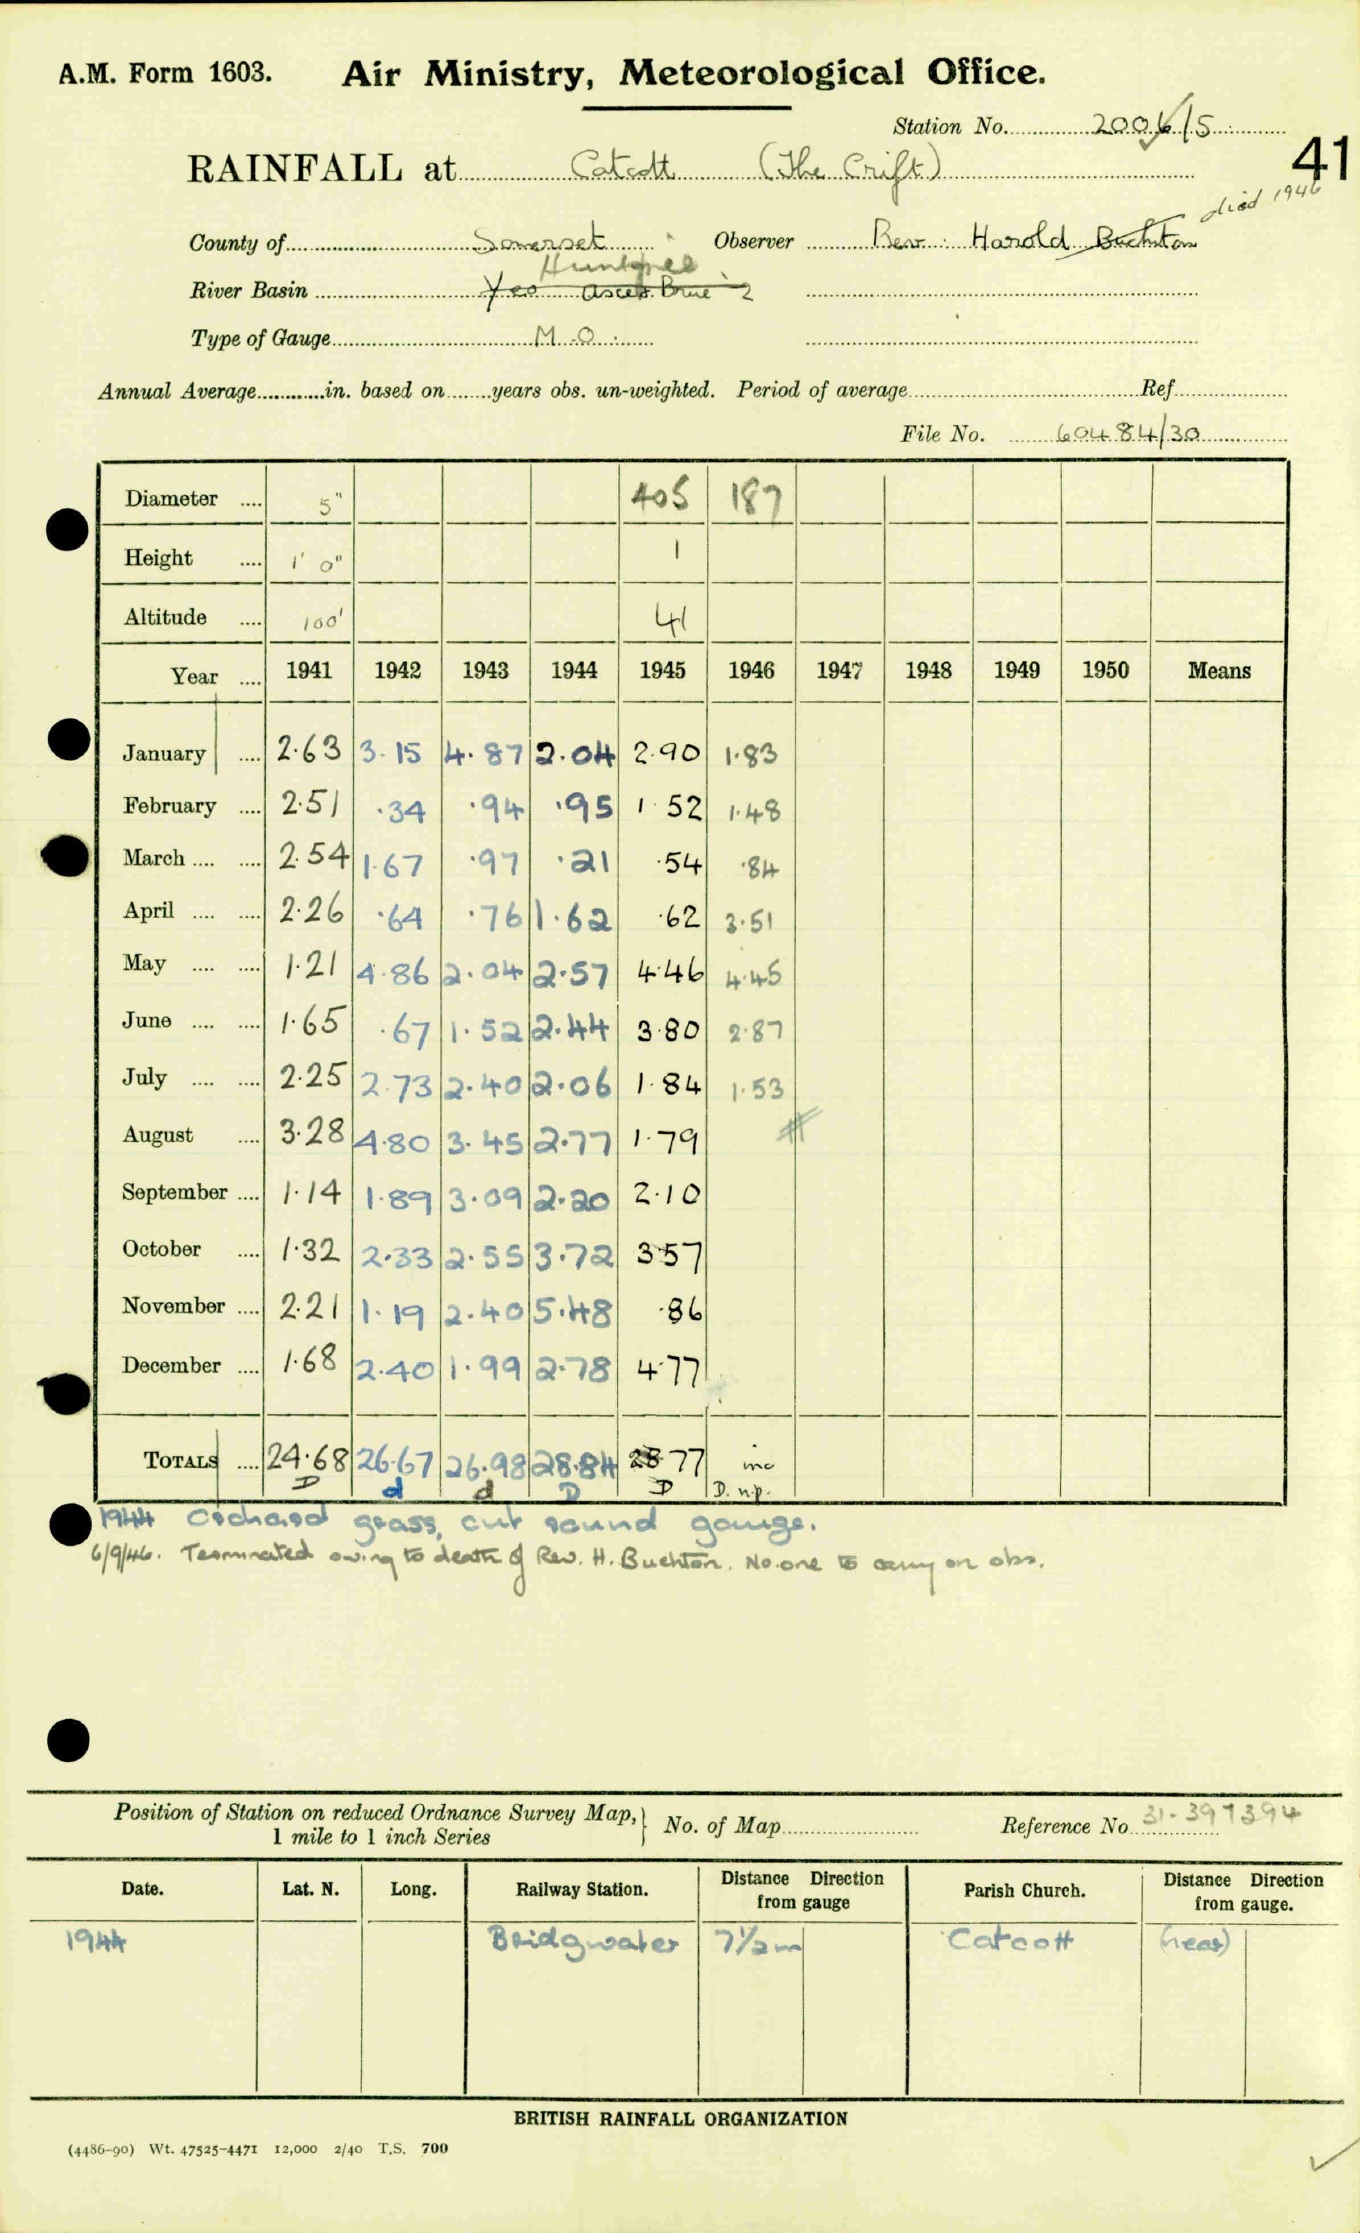 A.M. Form 1603. Air Ministry, Meteorological Office.
Station No. 2006/5
41
RAINFALL at Catcott (The Crift)
died 1946
County of Somerset Observer Rev. Harold Buchton
Huntspill
River Basin Yeo Brue 2
Type of Gauge M.O.
Annual Average in. based on years obs. un-weighted. Period of average Ref
File No. 60484/30
Diameter 5" 405 187
Height 1' 0" 1
Altitude 100' 41
Year 1941 1942 1943 1944 1945 1946 1947 1948 1949 1950 Means
January 2.63 3.15 4.87 2.04 2.90 1.83
February 2.51 .34 .94 .95 1.52 1.48
March 2.54 1.67 .97 .21 .54 .84
April 2.26 .64 .76 1.62 .62 3.51
May 1.21 4.86 2.04 2.57 4.46 4.45
June 1.65 .67 1.52 2.44 3.80 2.87
July 2.25 2.73 2.40 2.06 1.84 1.53
August 3.28 4.80 3.45 2.77 1.79
September 1.14 1.89 3.09 2.20 2.10
October 1.32 2.33 2.55 3.72 3.57
November 2.21 1.19 2.40 5.48 .86
December 1.68 2.40 1.99 2.78 4.77
TOTALS 24.68 26.67 26.98 28.84 28.77 inc
D d d D D D. n.p.
1944 Orchard grass, cut round gauge.
6/9/46. Terminated owing to death of Rev. H. Buchton. No one to carry on obs.
Position of Station on reduced Ordnance Survey Map, 1 mile to 1 inch Series No. of Map Reference No 31-397394
Date. Lat. N. Long. Railway Station. Distance Direction from gauge Parish Church. Distance Direction from gauge.
1944 Bridgwater 7½m Catcott (near)
BRITISH RAINFALL ORGANIZATION
(4486-90) Wt. 47525-4471 12,000 2/40 T.S. 700